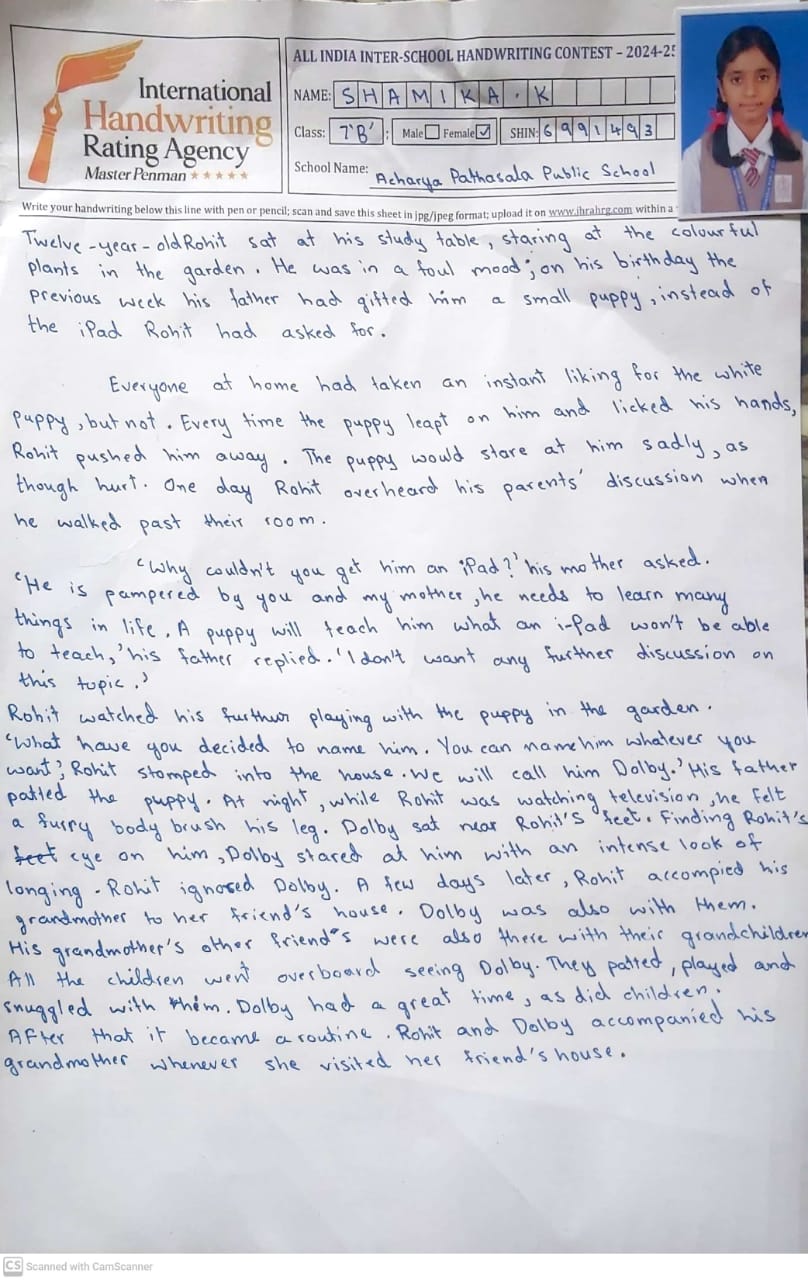 International
Handwriting
Rating Agency
Master Penman ★★★★★
ALL INDIA INTER-SCHOOL HANDWRITING CONTEST – 2024-25
NAME: SHAMIKA.K
Class: 7'B' : Male ☐ Female ☑ SHIN: 6991493
School Name: Acharya Pathasala Public School
Write your handwriting below this line with pen or pencil; scan and save this sheet in jpg/jpeg format; upload it on www.ihrahrg.com within a
Twelve-year-old Rohit sat at his study table, staring at the colourful
plants in the garden. He was in a foul mood; on his birthday the
previous week his father had gifted him a small puppy, instead of
the iPad Rohit had asked for.
Everyone at home had taken an instant liking for the white
puppy, but not. Every time the puppy leapt on him and licked his hands,
Rohit pushed him away. The puppy would stare at him sadly, as
though hurt. One day Rohit overheard his parents' discussion when
he walked past their room.
'Why couldn't you get him an iPad?' his mother asked.
'He is pampered by you and my mother, he needs to learn many
things in life. A puppy will teach him what an i-Pad won't be able
to teach,' his father replied. 'I don't want any further discussion on
this topic.'
Rohit watched his furthur playing with the puppy in the garden.
'What have you decided to name him. You can name him whatever you
want', Rohit stomped into the house. We will call him Dolby.' His father
patted the puppy. At night, while Rohit was watching television, he felt
a furry body brush his leg. Dolby sat near Rohit's feet. Finding Rohit's
feet eye on him, Dolby stared at him with an intense look of
longing. Rohit ignored Dolby. A few days later, Rohit accompied his
grandmother to her friend's house. Dolby was also with them.
His grandmother's other friend's were also there with their grandchildren
All the children went overboard seeing Dolby. They patted, played and
snuggled with him. Dolby had a great time, as did children.
After that it became a routine. Rohit and Dolby accompanied his
grandmother whenever she visited her friend's house.
CS Scanned with CamScanner